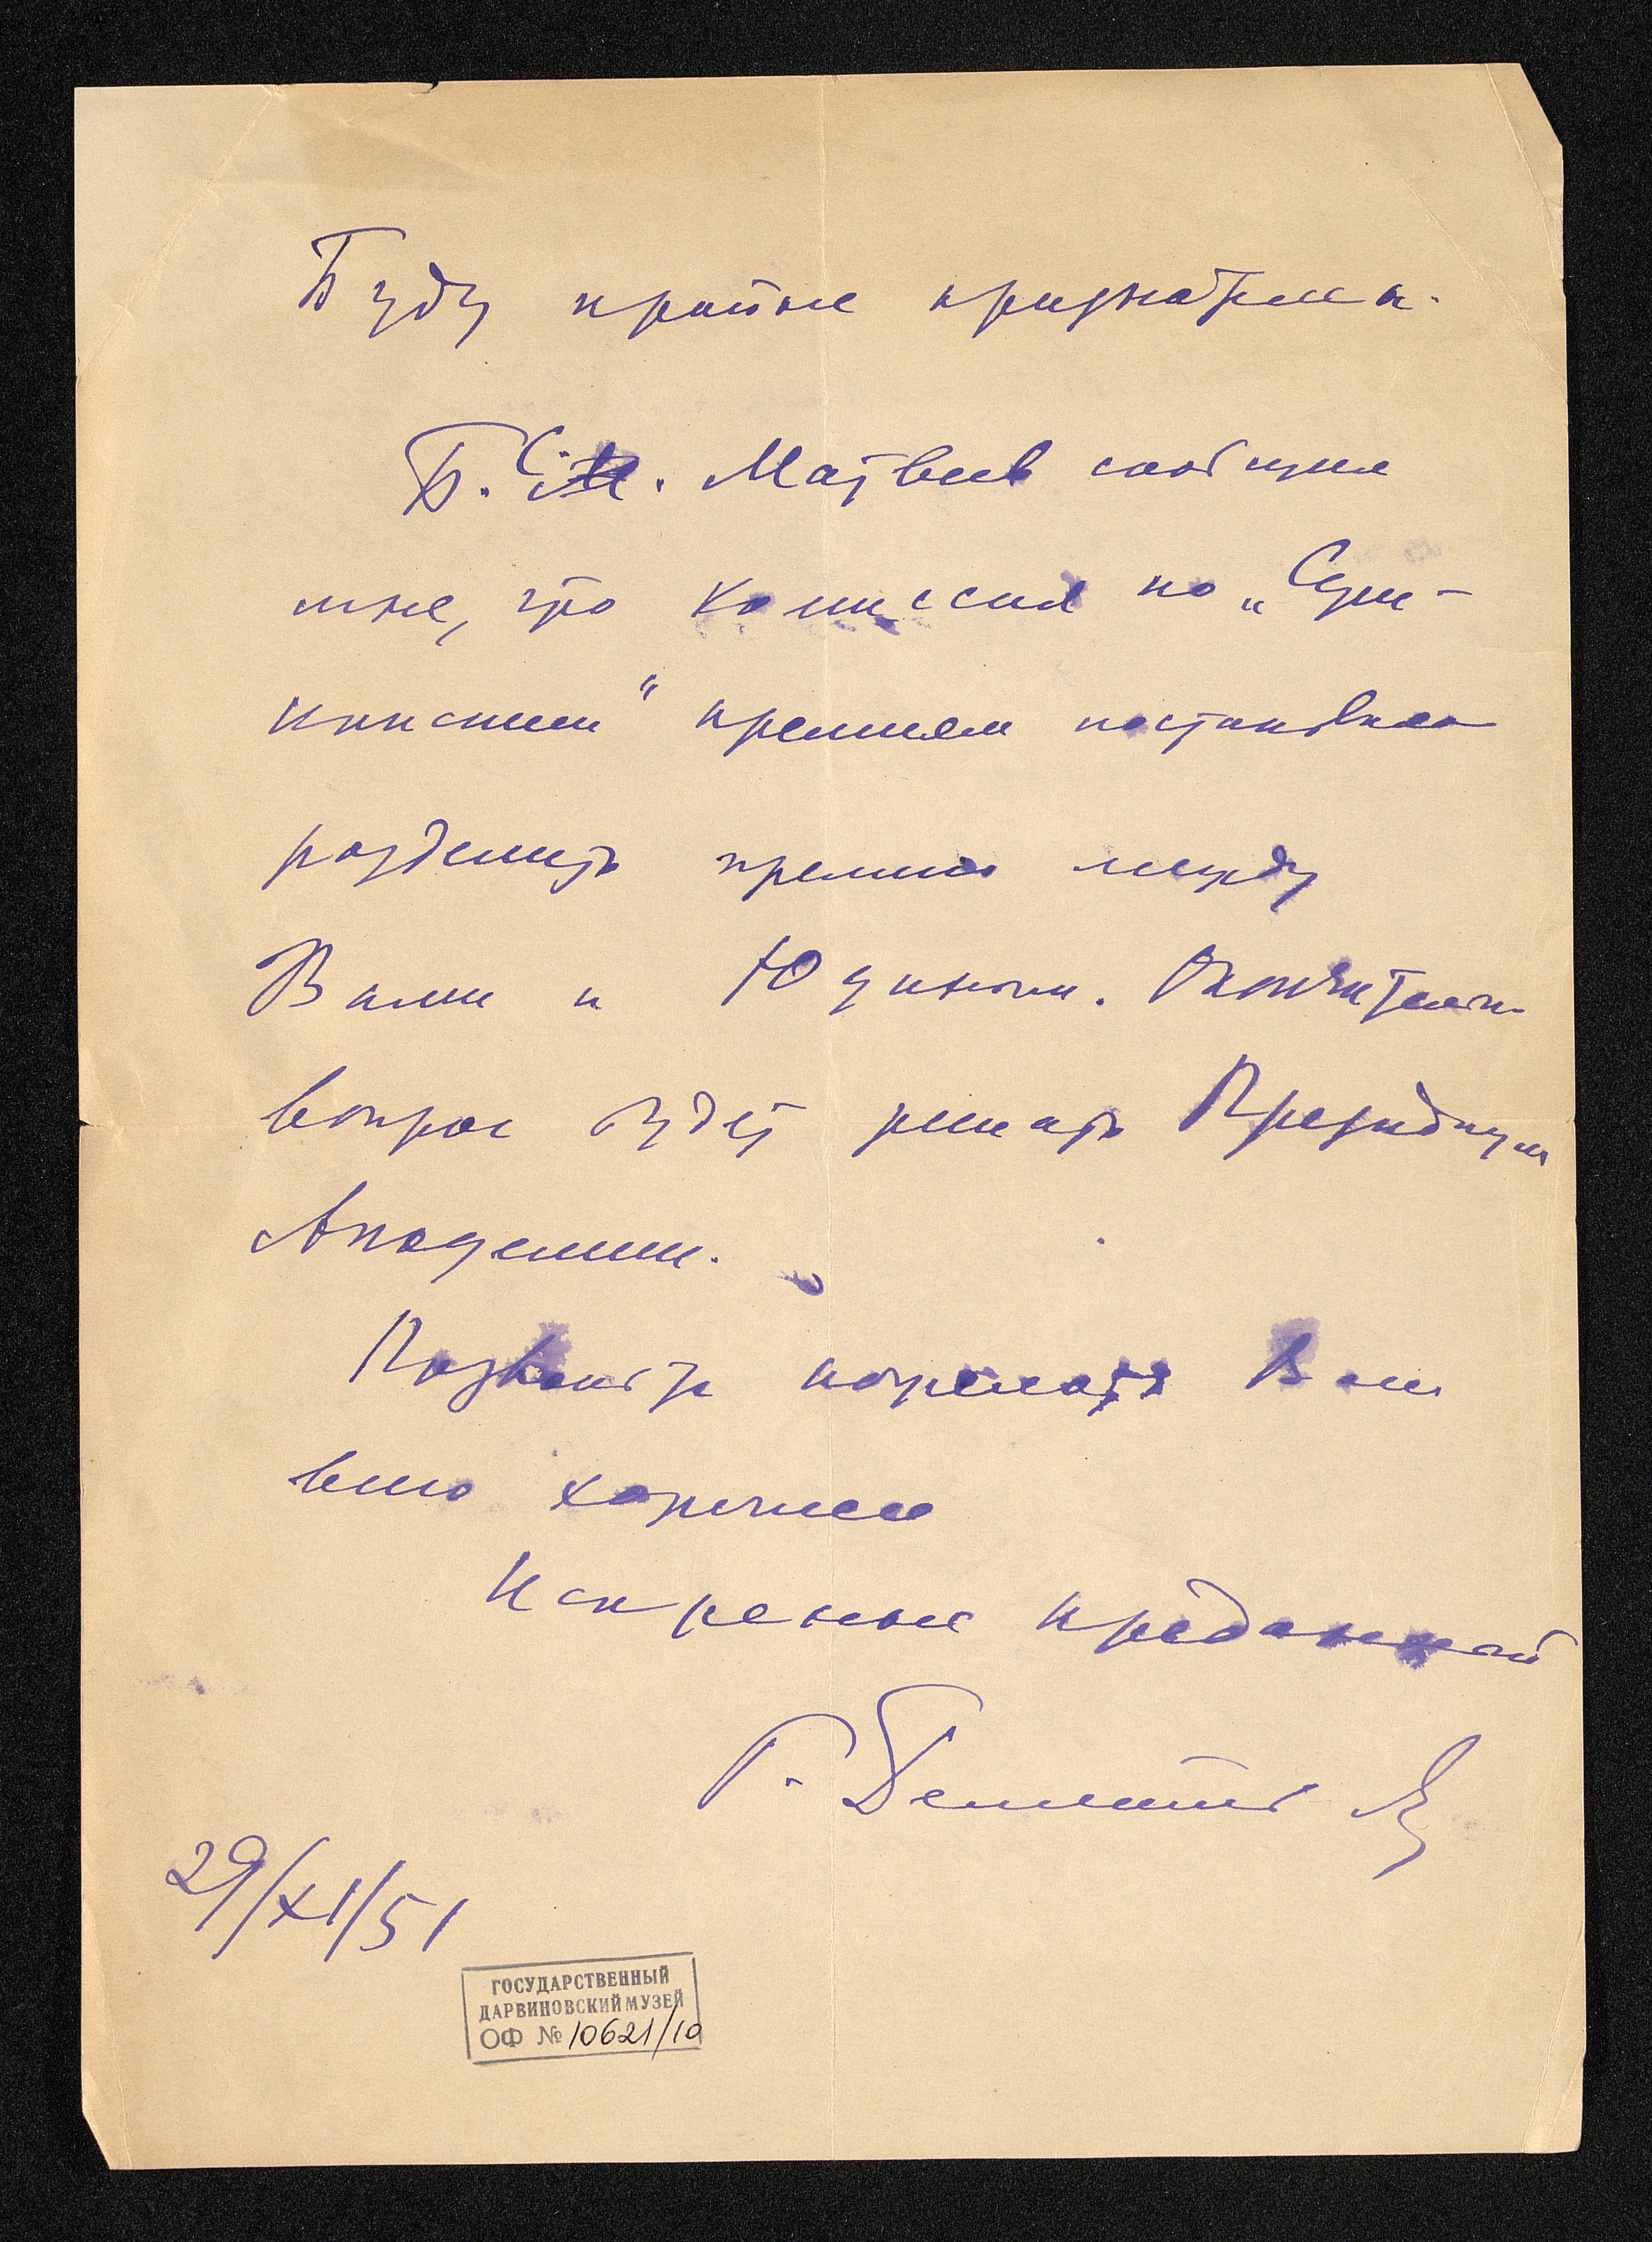 Буду крайне признателен.
Б. С. Матвеев сообщил
мне, что комиссия по „Суш-
кинским" премиям постановила
разделить премию между
Вами и Юдиным. Окончательно
вопрос будет решать Президиум
Академии.
Позвольте пожелать Вам
всего хорошего
Искренне преданный
Г. Дементьев
29/XI/51
ГОСУДАРСТВЕННЫЙ
ДАРВИНОВСКИЙ МУЗЕЙ
ОФ № 10621/10